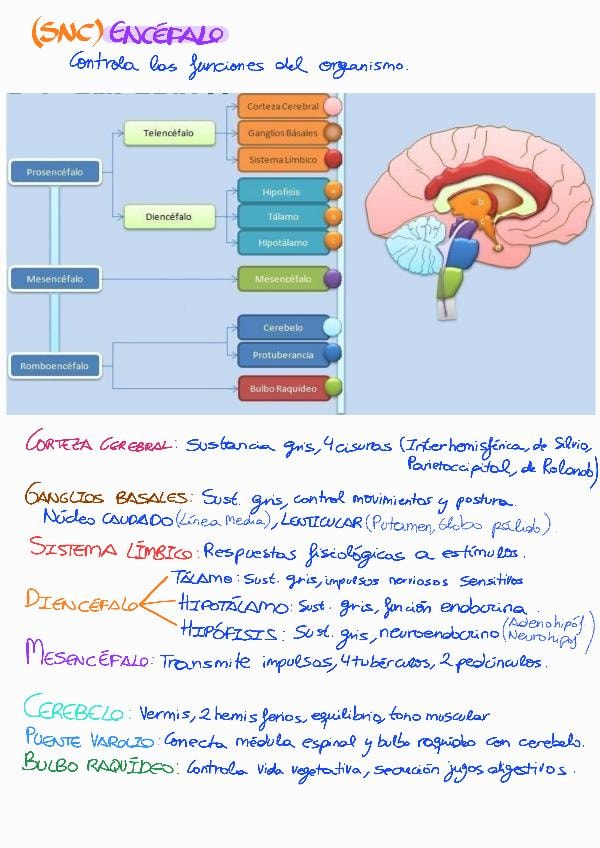 (SNC) ENCÉFALO
Controla las funciones del organismo.
Prosencéfalo
Telencéfalo
Corteza Cerebral
Ganglios Básales
Sistema Límbico
Diencéfalo
Hipofisis
a
Tálamo
b
Hipotálamo
c
Mesencéfalo
Mesencéfalo
Romboencéfalo
Cerebelo
Protuberancia
Bulbo Raquídeo
b
c
a
CORTEZA CEREBRAL: Sustancia gris, 4 cisuras (Interhemisférica, de Silvio,
Parietoccipital, de Rolando)
GANGLIOS BASALES: Sust. gris, control movimientos y postura.
Núcleo CAUDADO (Línea Media), LENTICULAR (Putamen, Globo pálido).
SISTEMA LÍMBICO: Respuestas fisiológicas a estímulos.
DIENCÉFALO
TÁLAMO: Sust. gris, impulsos nerviosos sensitivos
HIPOTÁLAMO: Sust. gris, función endocrina.
HIPÓFISIS: Sust. gris, neuroendocrino (Adenohipóf
Neurohipóf)
MESENCÉFALO: Transmite impulsos, 4 tubérculos, 2 pedúnculos.
CEREBELO: Vermis, 2 hemisferios, equilibrio, tono muscular
PUENTE VAROLIO: Conecta médula espinal y bulbo raquídeo con cerebelo.
BULBO RAQUÍDEO: Controla vida vegetativa, secreción jugos digestivos.